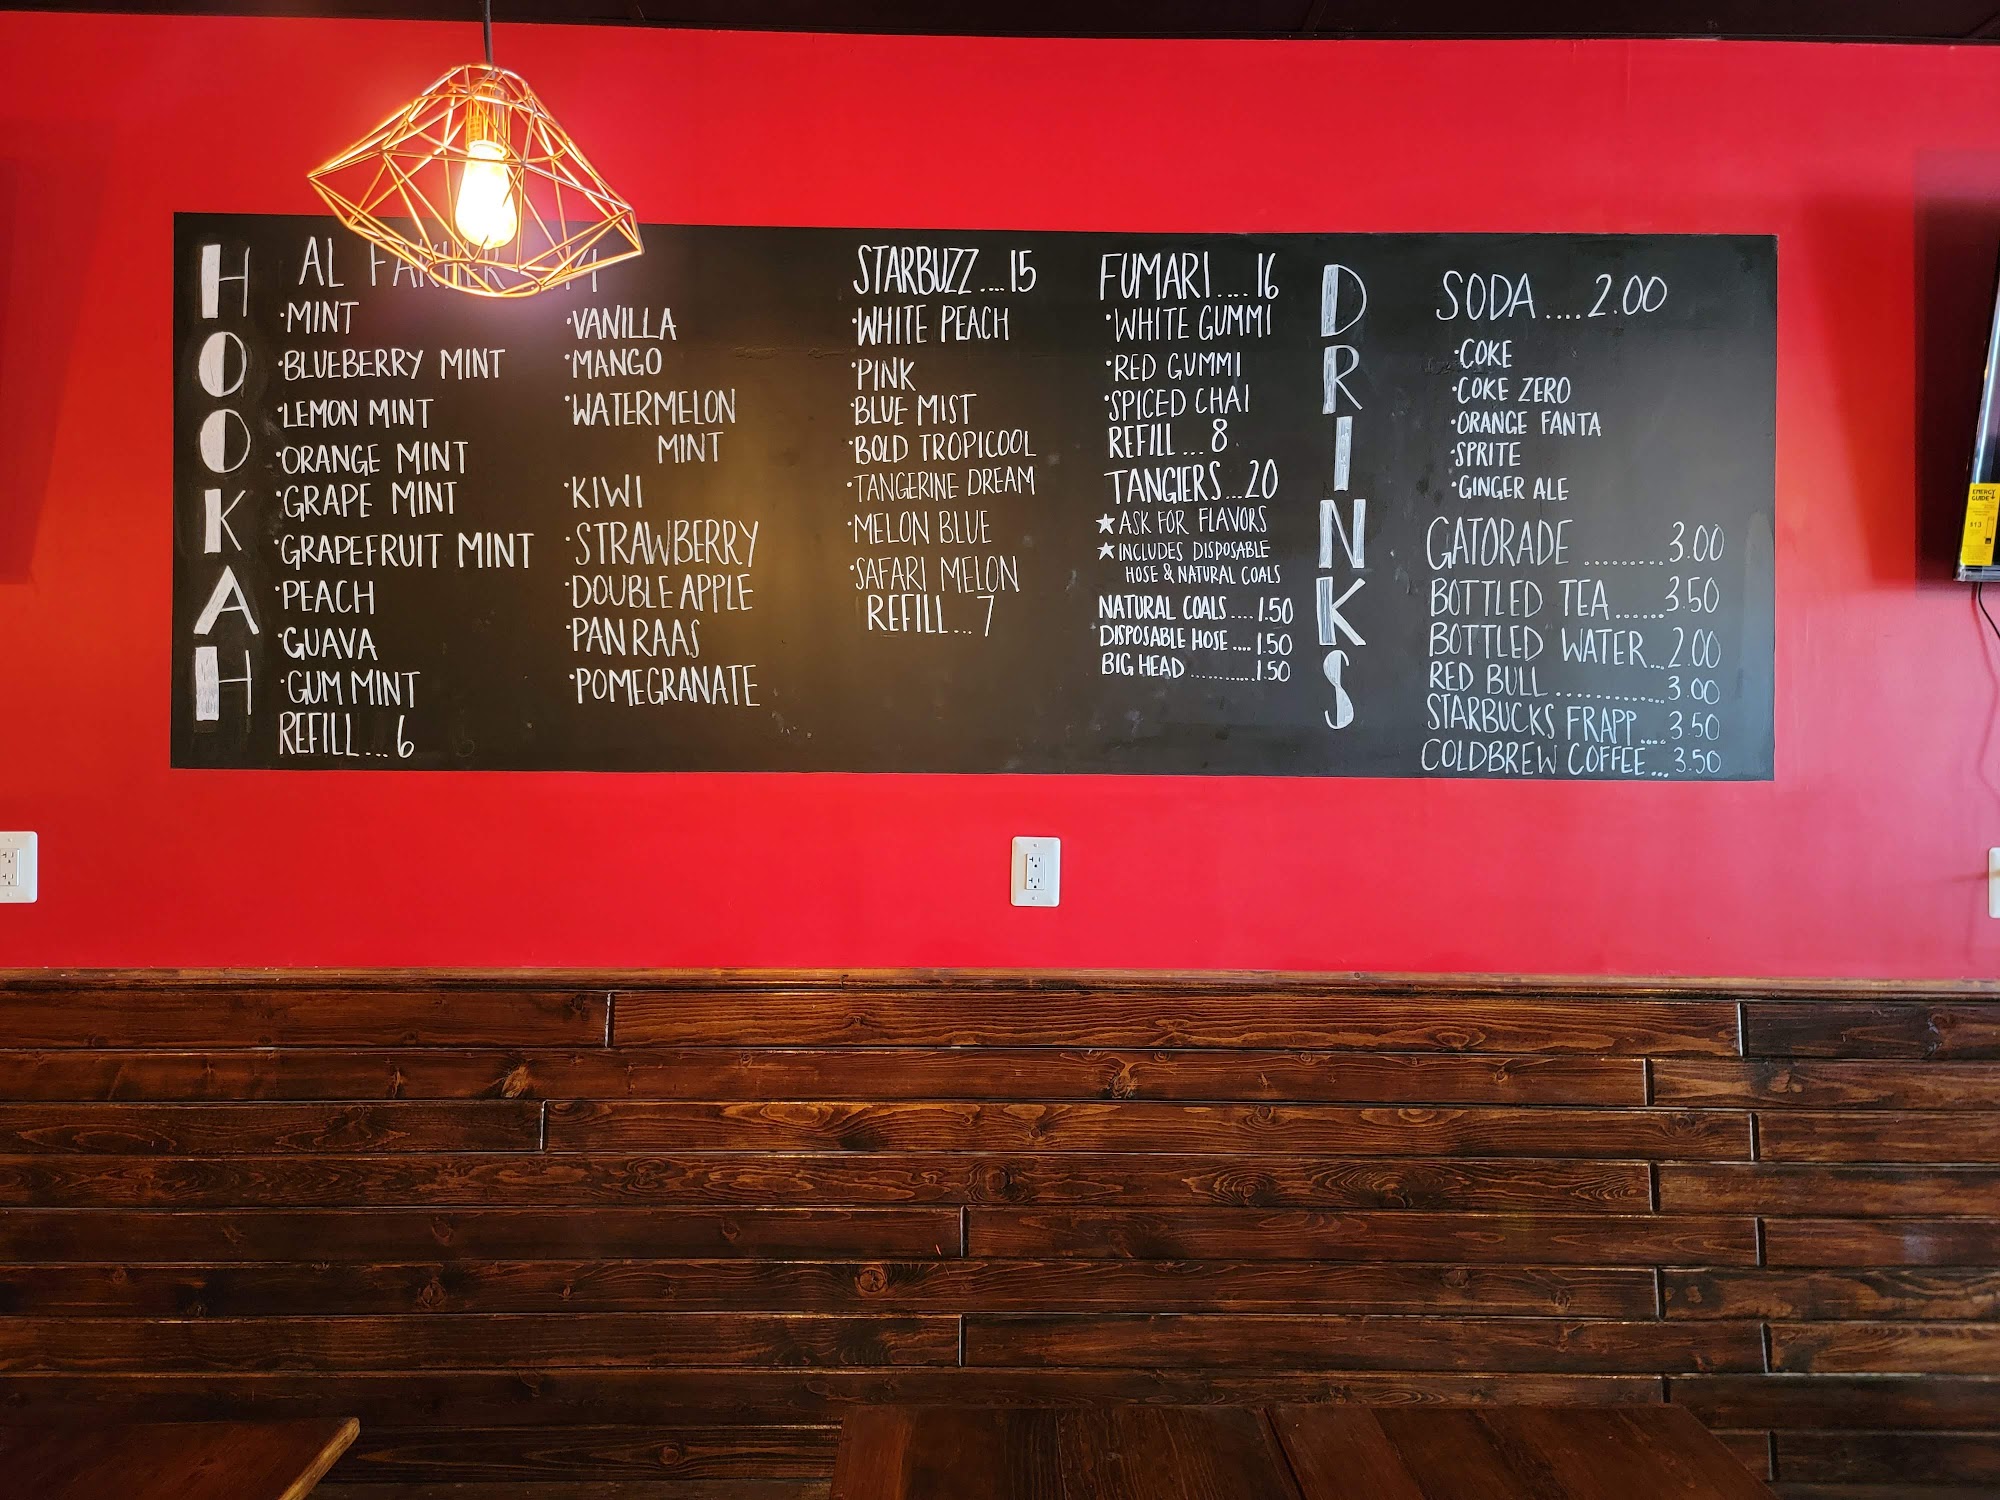 HOOKAH
AL FAKHER
·MINT
·BLUEBERRY MINT
·LEMON MINT
·ORANGE MINT
·GRAPE MINT
·GRAPEFRUIT MINT
·PEACH
·GUAVA
·GUM MINT
REFILL... 6
·VANILLA
·MANGO
·WATERMELON
MINT
·KIWI
·STRAWBERRY
·DOUBLE APPLE
·PAN RAAS
·POMEGRANATE
STARBUZZ....15
·WHITE PEACH
·PINK
·BLUE MIST
·BOLD TROPICOOL
·TANGERINE DREAM
·MELON BLUE
·SAFARI MELON
REFILL... 7
FUMARI.... 16
·WHITE GUMMI
·RED GUMMI
·SPICED CHAI
REFILL... 8
TANGIERS...20
★ASK FOR FLAVORS
★INCLUDES DISPOSABLE
HOSE & NATURAL COALS
NATURAL COALS....1.50
DISPOSABLE HOSE....1.50
BIG HEAD...........1.50
DRINKS
SODA....2.00
·COKE
·COKE ZERO
·ORANGE FANTA
·SPRITE
·GINGER ALE
GATORADE..........3.00
BOTTLED TEA......3.50
BOTTLED WATER...2.00
RED BULL.............3.00
STARBUCKS FRAPP....3.50
COLDBREW COFFEE...3.50
ENERGY
GUIDE
$13